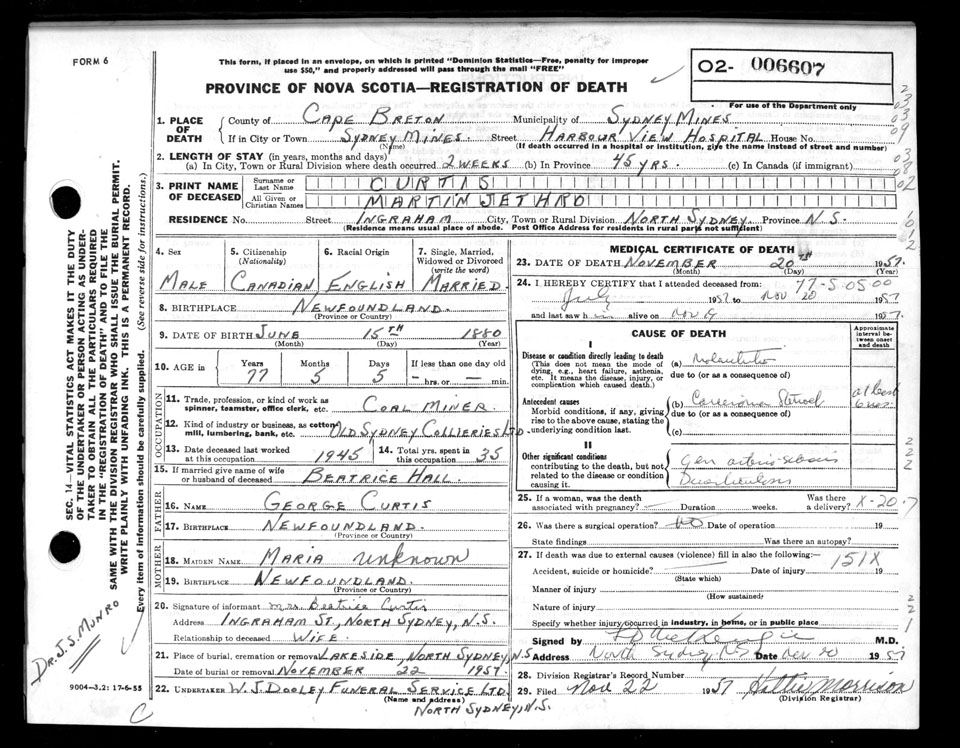 FORM 6
This form, if placed in an envelope, on which is printed "Dominion Statistics—Free, penalty for improper
use $50," and properly addressed will pass through the mail "FREE"
PROVINCE OF NOVA SCOTIA—REGISTRATION OF DEATH
02- 006607
For use of the Department only
1. PLACE OF DEATH
County of CAPE BRETON Municipality of SYDNEY MINES
If in City or Town SYDNEY MINES. Street HARBOUR VIEW HOSPITAL House No.
(Name) (If death occurred in a hospital or institution, give the name instead of street and number)
2. LENGTH OF STAY (in years, months and days)
(a) In City, Town or Rural Division where death occurred 2 WEEKS (b) In Province 45 YRS. (c) In Canada (if immigrant)
3. PRINT NAME OF DECEASED
Surname or Last Name CURTIS
All Given or Christian Names MARTIN JETHRO
RESIDENCE No. Street INGRAHAM City, Town or Rural Division NORTH SYDNEY Province N.S.
(Residence means usual place of abode. Post Office Address for residents in rural parts not sufficient)
4. Sex
MALE
5. Citizenship (Nationality)
CANADIAN
6. Racial Origin
ENGLISH
7. Single, Married, Widowed or Divorced (write the word)
MARRIED.
8. BIRTHPLACE NEWFOUNDLAND.
(Province or Country)
9. DATE OF BIRTH JUNE 15TH 1880
(Month) (Day) (Year)
10. AGE in
Years Months Days If less than one day old
77 5 5 — hrs. or — min.
OCCUPATION
11. Trade, profession, or kind of work as
spinner, teamster, office clerk, etc. COAL MINER.
12. Kind of industry or business, as cotton
mill, lumbering, bank, etc. OLD SYDNEY COLLIERIES LTD.
13. Date deceased last worked
at this occupation 1945
14. Total yrs. spent in
this occupation 35
15. If married give name of wife
or husband of deceased BEATRICE HALL.
FATHER
16. NAME GEORGE CURTIS
17. BIRTHPLACE NEWFOUNDLAND.
(Province or Country)
MOTHER
18. MAIDEN NAME MARIA unknown
19. BIRTHPLACE NEWFOUNDLAND.
(Province or Country)
20. Signature of informant Mrs. Beatrice Curtis
Address INGRAHAM ST., NORTH SYDNEY, N.S.
Relationship to deceased WIFE.
21. Place of burial, cremation or removal LAKESIDE, NORTH SYDNEY, N.S
Date of burial or removal NOVEMBER 22 1957.
22. UNDERTAKER W. J. DOOLEY FUNERAL SERVICE LTD.
(Name and address)
NORTH SYDNEY, N.S.
MEDICAL CERTIFICATE OF DEATH
23. DATE OF DEATH NOVEMBER 20TH 1957.
(Month) (Day) (Year)
77-5-05 00
24. I HEREBY CERTIFY that I attended deceased from:
July 1957 to Nov 20 1957
and last saw h im alive on Nov 19 1957.
CAUSE OF DEATH
Approximate interval between onset and death
I
Disease or condition directly leading to death
(This does not mean the mode of
dying, e.g., heart failure, asthenia,
etc. It means the disease, injury, or
complication which caused death.)
(a)
due to (or as a consequence of)
Antecedent causes
Morbid conditions, if any, giving
rise to the above cause, stating the
underlying condition last.
(b) Carcinoma Stomach
due to (or as a consequence of)
(c)
at least
6 mos.
II
Other significant conditions
contributing to the death, but not
related to the disease or condition
causing it.
Gen arterio sclerosis
25. If a woman, was the death
associated with pregnancy? Duration weeks.
Was there
a delivery? X-20-7
26. Was there a surgical operation? NO Date of operation 19
State findings Was there an autopsy?
27. If death was due to external causes (violence) fill in also the following:—
151X
Accident, suicide or homicide? Date of injury 19
(State which)
Manner of injury
(How sustained)
Nature of injury
Specify whether injury occurred in industry, in home, or in public place
Signed by M.D.
Address North Sydney, N.S Date Nov 20 1957
28. Division Registrar's Record Number
29. Filed Nov. 22 1957 Hattie Morrison
(Division Registrar)
SEC. 14—VITAL STATISTICS ACT MAKES IT THE DUTY
OF THE UNDERTAKER OR PERSON ACTING AS UNDER-
TAKER TO OBTAIN ALL THE PARTICULARS REQUIRED
IN THE "REGISTRATION OF DEATH" AND TO FILE THE
SAME WITH THE DIVISION REGISTRAR WHO SHALL ISSUE THE BURIAL PERMIT.
WRITE PLAINLY WITH UNFADING INK. THIS IS A PERMANENT RECORD.
Every item of information should be carefully supplied. (See reverse side for instructions.)
DR. J. S. MUNRO
9004-3,2: 17-6-55
C